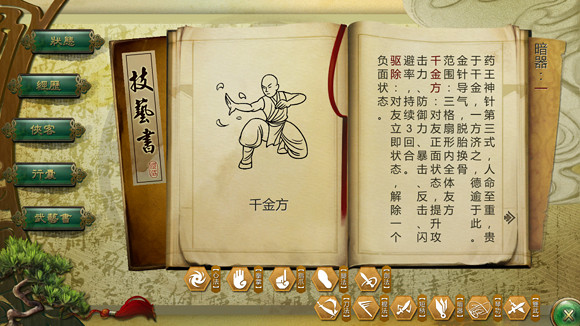 狀態
經歷
俠客
行囊
武藝書
技藝書
千金方
暗器：一
药王神针第三式，人命至重，贵
于千金，一方济之，德逾于此。
金针导气，脱胎换骨
范围：三格扇形内全体友方
千金方：对友正面状态，提升攻
击力、防御力、暴击、反击、闪
避率，持续3回合。
驱除：对友立即状态，解除一个
负面状态。